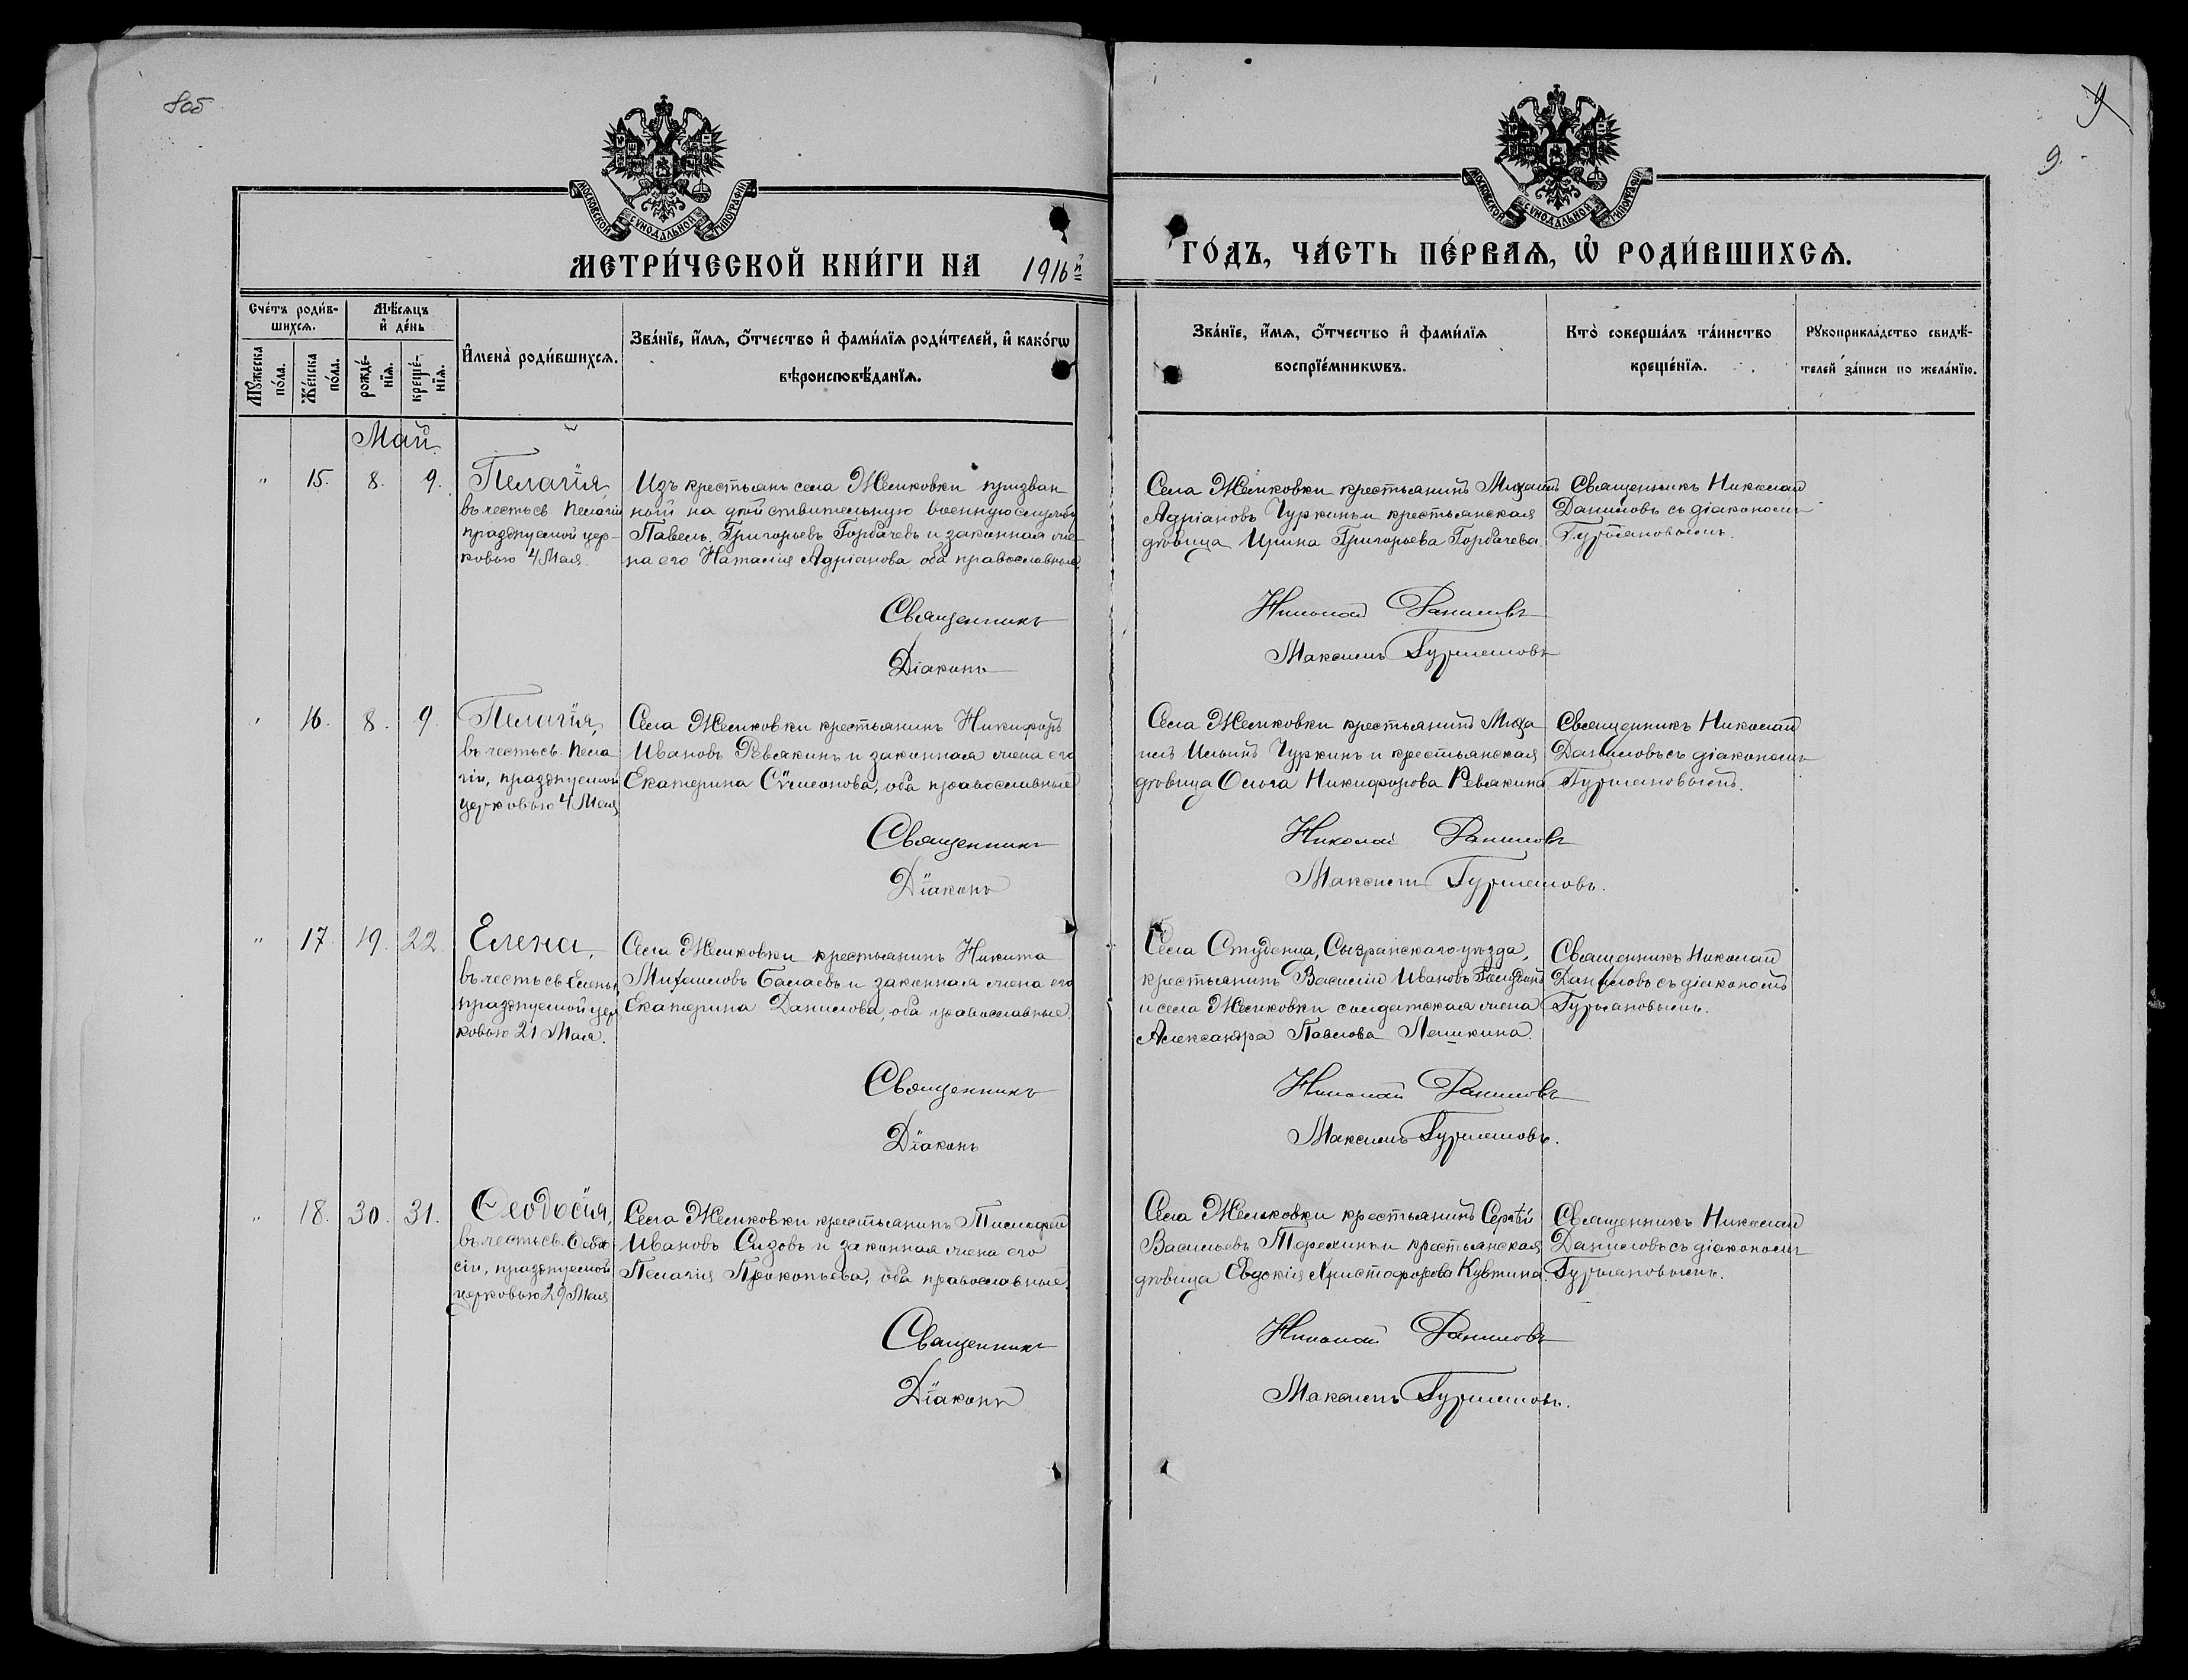 8об
9
9.
МОСКОВСКОЙ СѴНОДАЛЬНОЙ ТИПОГРАФІИ
МОСКОВСКОЙ СѴНОДАЛЬНОЙ ТИПОГРАФІИ
МЕТРИ́ЧЕСКОЙ КНИ́ГИ НА 1916й
ГО́ДЪ, ЧА́СТЬ ПЕ́РВАѦ, Ѡ҆ РОДИ́ВШИХСѦ.
Сче́тъ роди́в-
шихсѧ.
Мꙋ́жеска
по́ла.
Же́нска
по́ла.
Мѣ́сѧцъ
и҆ де́нь
рожде́-
нїѧ.
креще́-
нїѧ.
И҆мена̀ роди́вшихсѧ.
Зва́нїе, и҆́мѧ, ѻ҆́тчество и҆ фами́лїѧ роди́телей, и҆ како́гѡ
вѣроисповѣ́данїѧ.
Зва́нїе, и҆́мѧ, ѻ҆́тчество и҆ фами́лїѧ
воспрїе́мникѡвъ.
Кто̀ соверша́лъ та́инство
креще́нїѧ.
Рꙋкоприкла́дство свидѣ́-
телей за́писи по жела́нїю.
Май.
" 15. 8. 9.
Пелагія,
въ честь св. Пелагіи
празднуемой цер-
ковью 4 Мая.
Изъ крестьянъ села Жемковки призван
ный на дѣйствительную военную службу
Павелъ Григорьевъ Горбачевъ и законная же-
на его Наталія Адріанова, оба православные.
Села Жемковки крестьянинъ Михаилъ
Адріановъ Чуркинъ и крестьянская
дѣвица Ирина Григорьева Горбачева.
Священникъ Николай
Даниловъ съ діакономъ
Гурьяновымъ.
Священникъ Николай Даниловъ
Діаконъ Максимъ
" 16. 8. 9.
Пелагія,
въ честь св. Пела
гіи, празднуемой
церковью 4 Мая
Села Жемковки крестьянинъ Никифоръ
Ивановъ Ревякинъ и законная жена его
Екатерина Сѵмеонова, оба православные
Села Жемковки крестьянинъ Миха
илъ Ильинъ Чуркинъ и крестьянская
дѣвица Ольга Никифорова Ревякина
Священникъ Николай
Даниловъ съ діакономъ
Гурьяновымъ.
Священникъ Николай Даниловъ
Діаконъ Максимъ
" 17. 19. 22.
Елена,
въ честь св. Елены,
празднуемой цер
ковью 21 Мая.
Села Жемковки крестьянинъ Никита
Михаиловъ Балаевъ и законная жена его
Екатерина Данилова, оба православные.
Села Студенца, Сызранскаго уѣзда,
крестьянинъ Василій Ивановъ
и села Жемковки солдатская жена
Александра Павлова Лешкина.
Священникъ Николай
Даниловъ съ діакономъ
Гурьяновымъ.
Священникъ Николай Даниловъ
Діаконъ Максимъ
" 18. 30. 31.
Ѳеодосія,
въ честь св. Ѳеодо
сіи, празднуемой
церковью 29 Мая
Села Жемковки крестьянинъ Тимофей
Ивановъ Сизовъ и законная жена его
Пелагія Прокопьева, оба православные.
Села Жемковки крестьянинъ Сергѣй
Васильевъ Терехинъ и крестьянская
дѣвица Евдокія Христофорова
Священникъ Николай
Даниловъ съ діакономъ
Гурьяновымъ.
Священникъ Николай Даниловъ
Діаконъ Максимъ